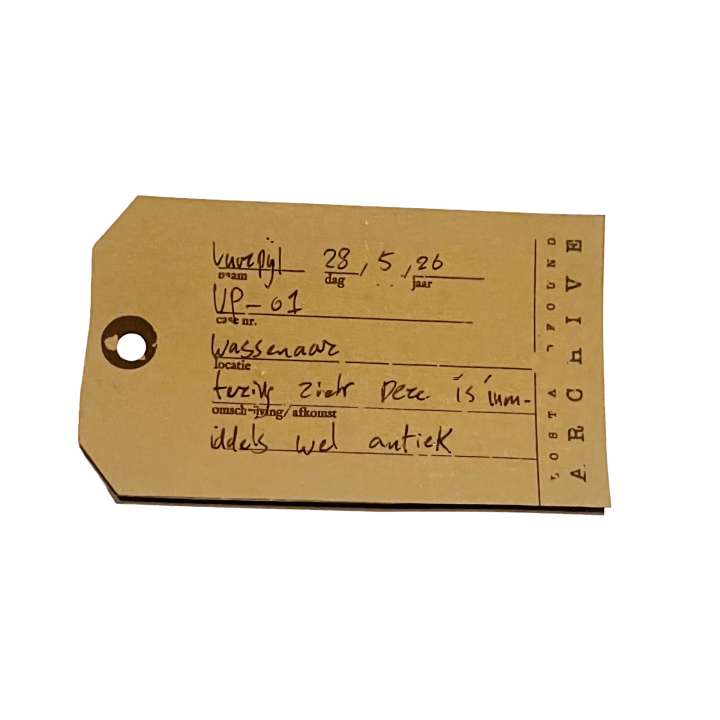 Vuurpijl 28 / 5 / 26
naam dag jaar
VP-01
case nr.
Wassenaar
locatie
Deze is inm-
omschrijving/afkomst
iddels wel antiek
LOST & FOUND
ARCHIVE